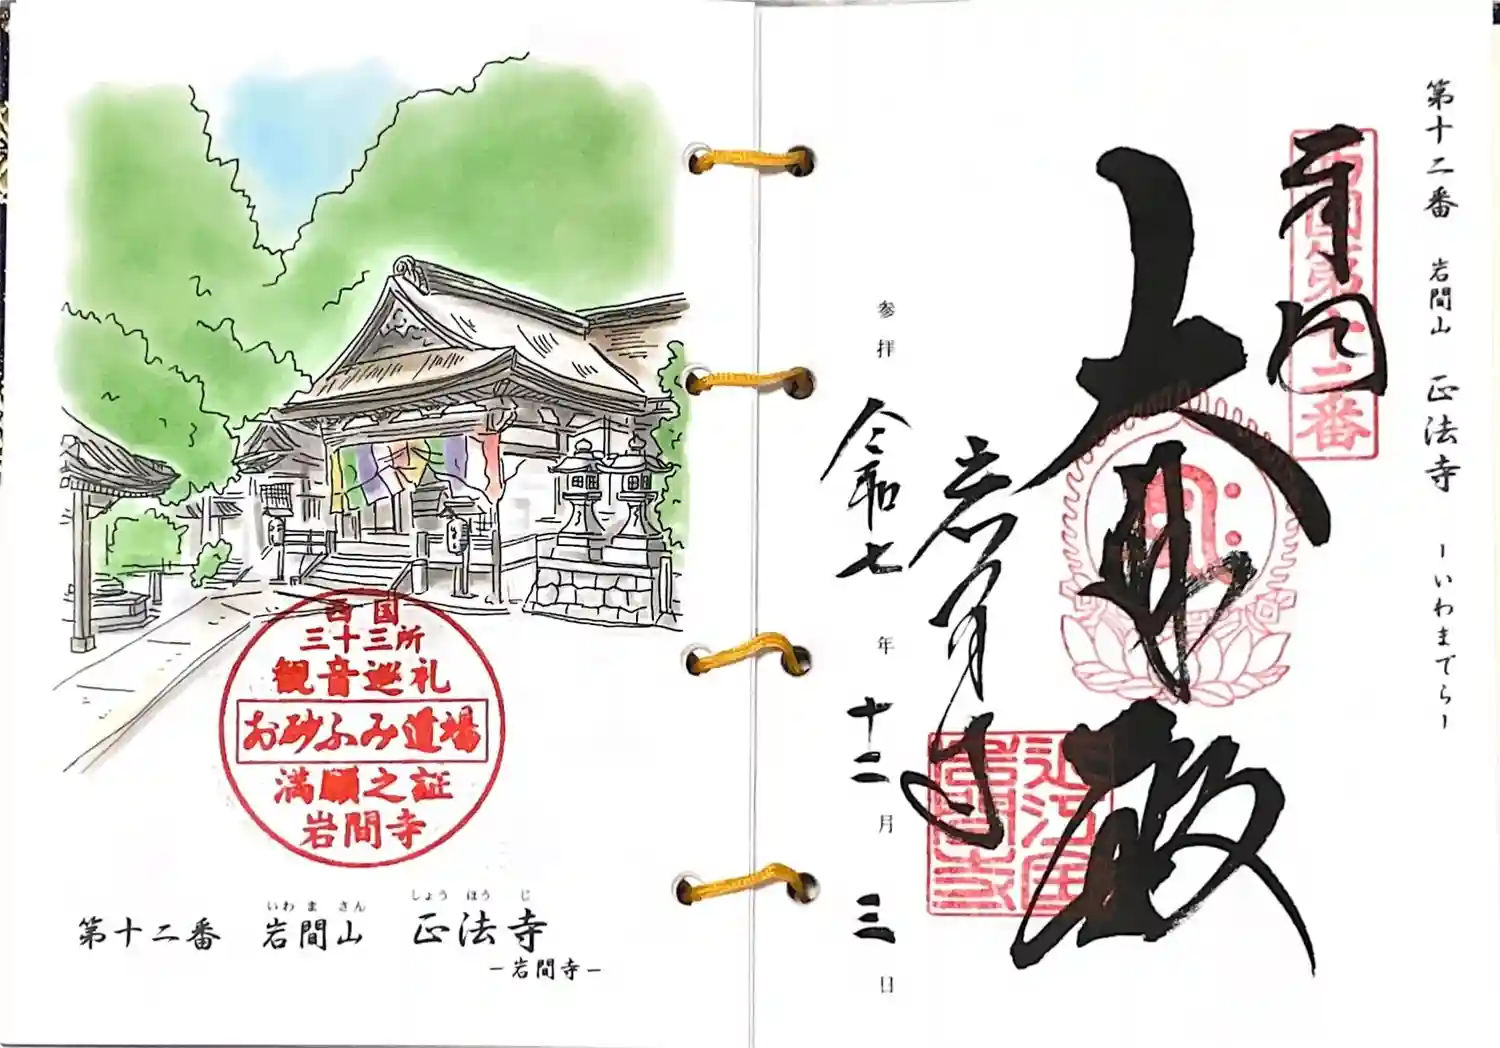 第十二番 岩間山 正法寺 ーいわまでらー
奉拝
西国第十二番
大悲殿
岩間寺
近江国
岩間寺
参拝 令和七年十二月三日
西国
三十三所
観音巡礼
お砂ふみ道場
満願之証
岩間寺
いわまさん しょうほうじ
第十二番 岩間山 正法寺
ー岩間寺ー